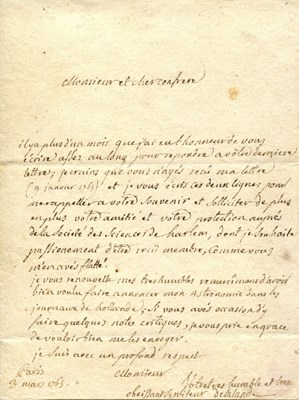 Monsieur et cher confrere
il y a plus d'un mois que j'ai eu l'honneur de vous
écrire assez au long pour repondre a votre derniere
lettre; je crains que vous n'ayés recu ma lettre
(9 janvier 1763) et je vous écris ces deux lignes pour
me rappeller a votre Souvenir et Solliciter de plus
en plus votre amitié et votre protection auprès
de la Societé des Sciences de harlem, dont je Souhaite
passionement d'être reçu membre, Comme vous
m'en avés flatté.
je vous renouvelle mes tres humbles remercimens d'avoir
bien voulu faire annoncer mon Astronomie dans les
journaux de hollande; Si vous avés occasion d'y
faire quelques notes critiques, je vous prie en grace
de vouloir bien me les envoyer.
je Suis avec un profond respect
Monsieur
Paris
mars 1763.
Votre tres humble et
obeissant Serviteur delalande